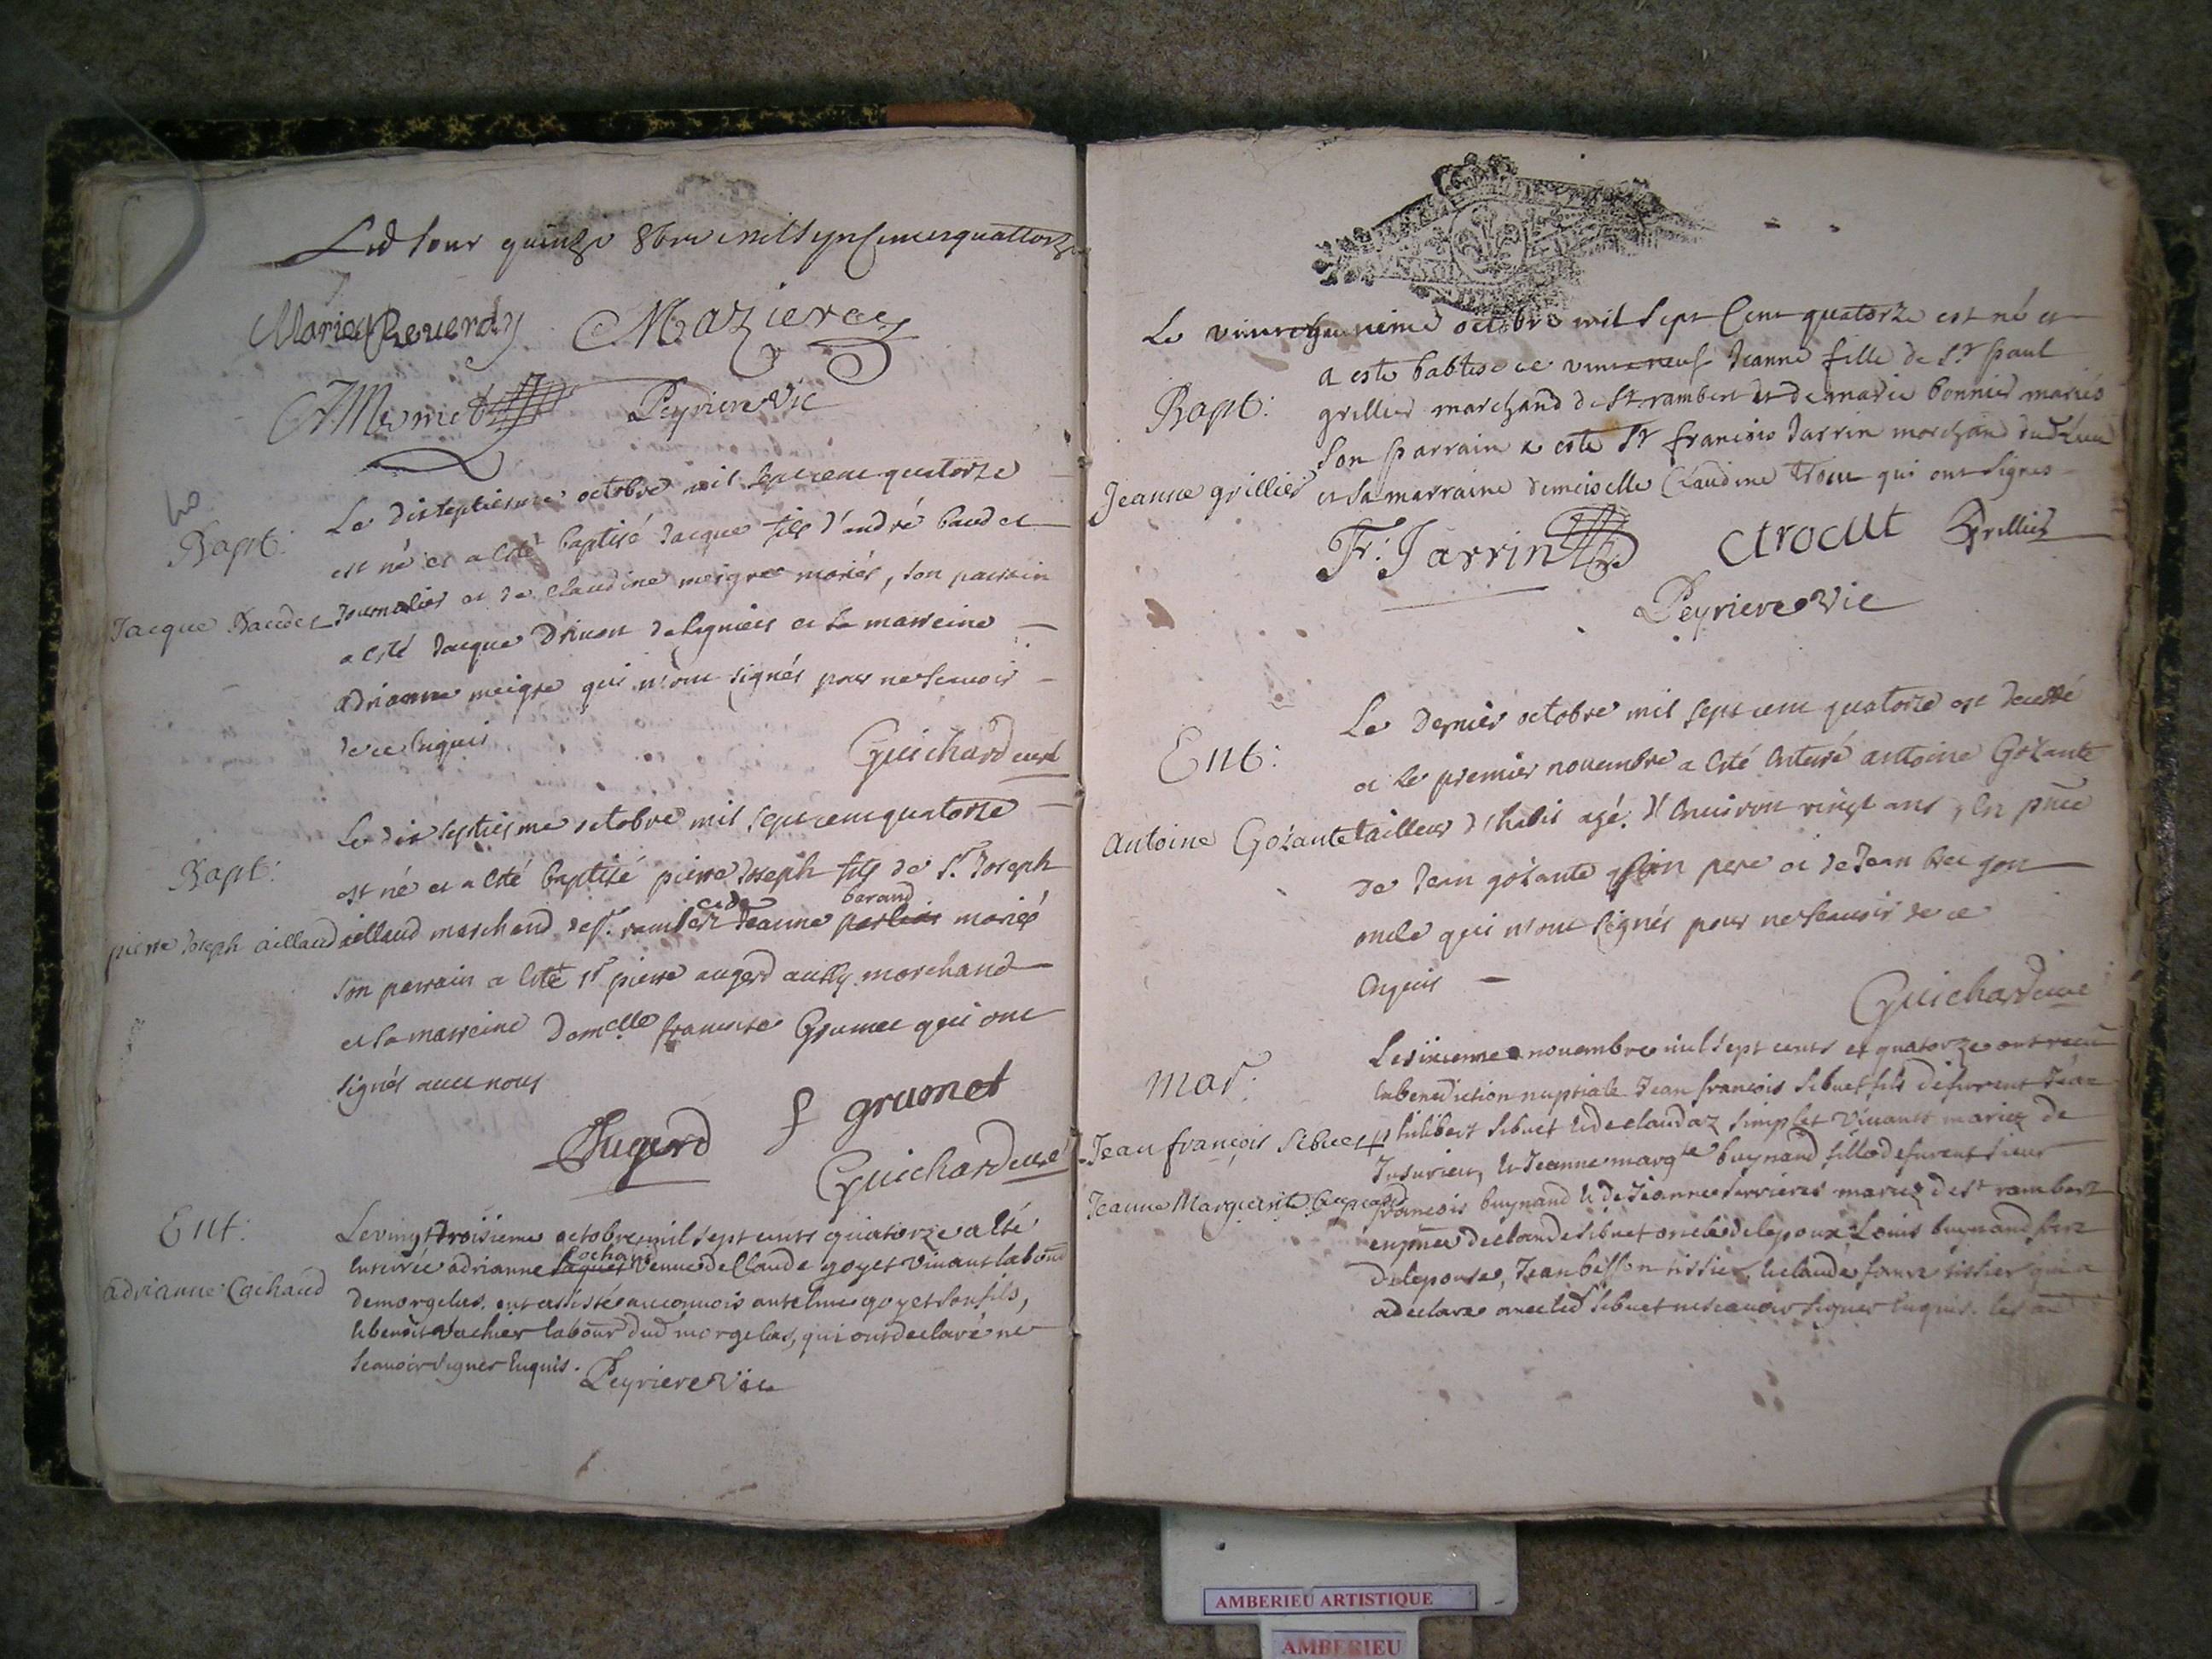 Led Jour quinze 8bre mil sept cent quattorze
Marie Reverdy Mazieres
AMermet Peyriere vic
Bapt:
Jacque Baudet
Le dixseptiesme octobre mil sept cent quatorze
est né et a esté baptisé Jacque fils d'andré baudet
Journalier et de claudine meigre mariés, son parrain
a esté Jacque et sa marreine
adrianne meigre qui n'ont signés pour ne scavoir
de ce enquis
Guichard curé
Bapt:
pierre Joseph aillaud
Le dix septiesme octobre mil sept cent quatorze
est né et a esté baptisé pierre Joseph fils de Sr. Joseph
aillaud marchand de st. rambert et de Jeanne berand mariés
son parrain a esté sr pierre augerd aussy marchand
et sa marreine damelle francoise Grumet qui ont
signés avec nous
Augerd f grumet
Guichard curé
Ent:
adrianne Cochand
Le vingt troisieme octobre mil sept cents quatorze a esté
enterrée adrianne Cochand veuve de Claude goyet vivant labour
de morgelas. ont assisté au convois antelme goyet son fils,
et benoit vachier labour dud morgelas, qui ont declaré ne
scavoir signer enquis.
Peyriere vic
Bapt:
Jeanne grillier
Le octobre mil sept Cent quatorze est né et
a esté babtisé ce vint neuf Jeanne fille de Sr paul
grillier marchand de St rambert et de marie bonnier mariés
son parrain a este Sr francois Jarrin marchand dud Lieu
et sa marraine demeiselle Claudine trocu qui ont signes
Fr: Jarrin C trocut Grillier
Peyriere vic
Ent:
Antoine Gozante
Le dernier octobre mil sept cent quatorze est decedé
et le premier novembre a esté enterré antoine Gozante
tailleur d'habis agé d'environ vingt ans, en pnce
de Jean gozante son pere et de Jean bregon
oncle qui n'ont signés pour ne scavoir de ce
enquis
Guichard curé
mar:
Jean françois Sibuet
Jeanne Marguerite
Le sixieme novembre mil sept cents et quatorze ont receu
la benediction nuptiale Jean francois Sibuet fils de furent
philibert Sibuet et de claudaz simplet vivants mariez de
Jusurieu, et Jeanne margte buynand fille de furent sieur
francois buynand et de Jeanne Serrieres mariez de st rambert
en pnce de claude Sibuet oncle de lepoux Louis buynand frere
de lepouse, Jean besson tissier, et claude tissier qui a
a declare avec led Sibuet ne scavoir signer enquis. les au
AMBERIEU ARTISTIQUE
AMBERIEU